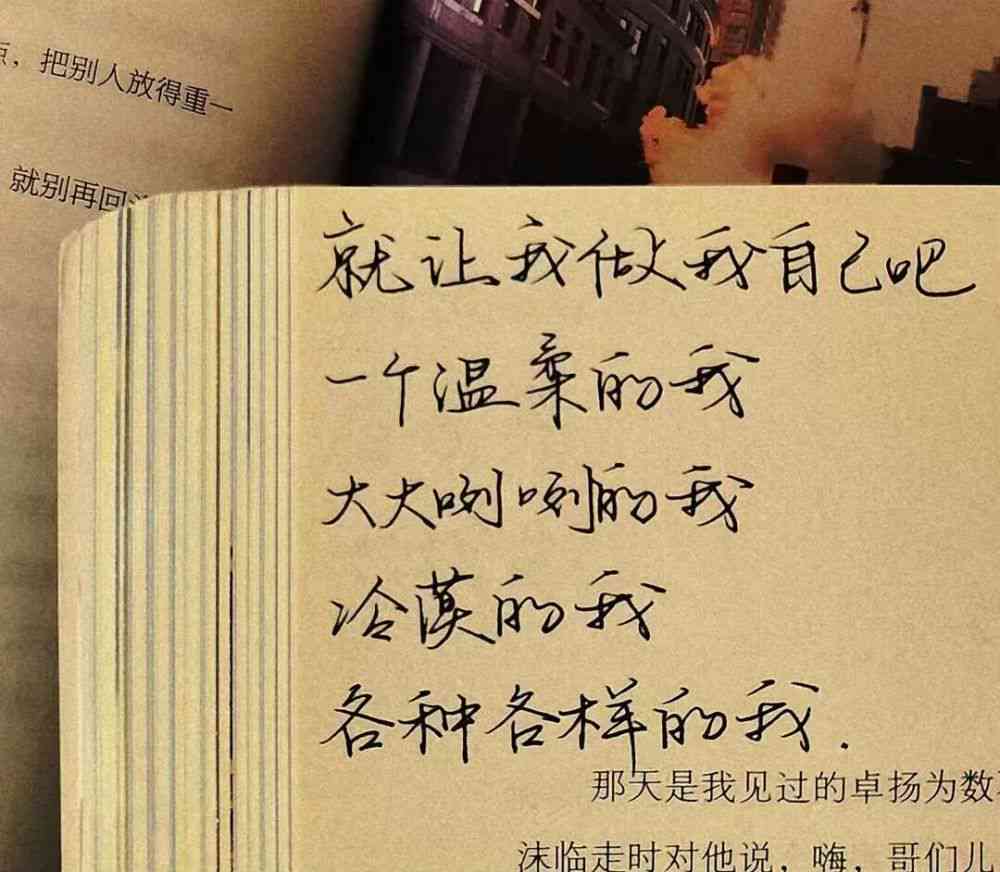 ，把别人放得重一
就别再回
就让我做我自己吧
一个温柔的我
大大咧咧的我
冷漠的我
各种各样的我.
那天是我见过的卓扬为数
沫临走时对他说，嗨，哥们儿